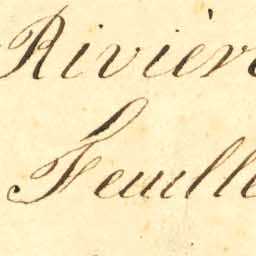 Rivièr
Feuille